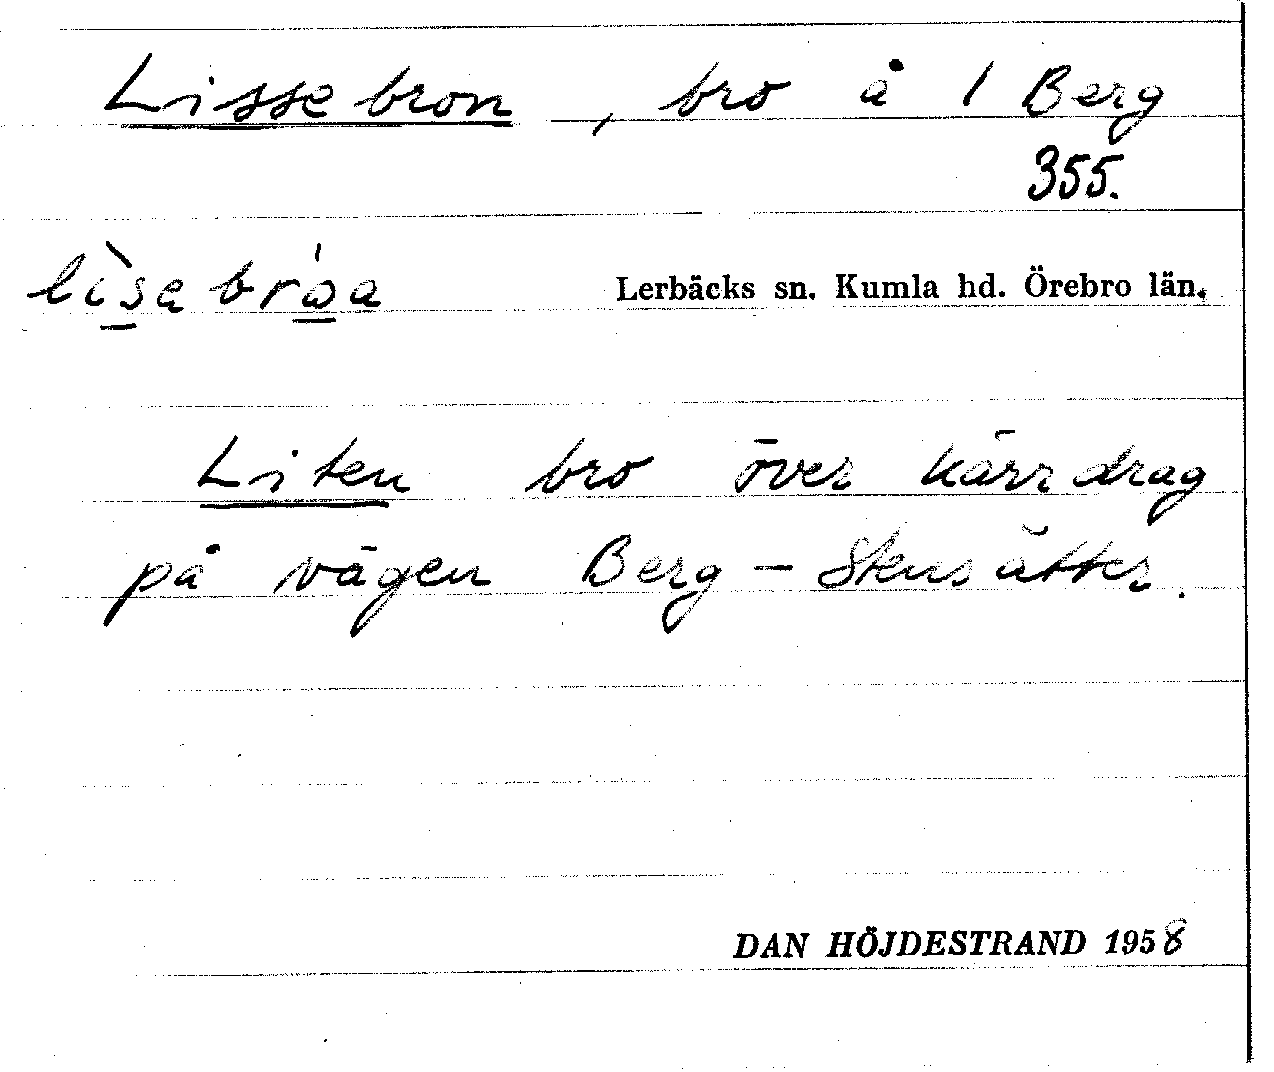 Lissebron, bro å 1 Berg
355.
lìsabrω̍a Lerbäcks sn. Kumla hd. Örebro län.
Liten bro över kärrdrag
på vägen Berg - Stensätter.
DAN HÖJDESTRAND 1958